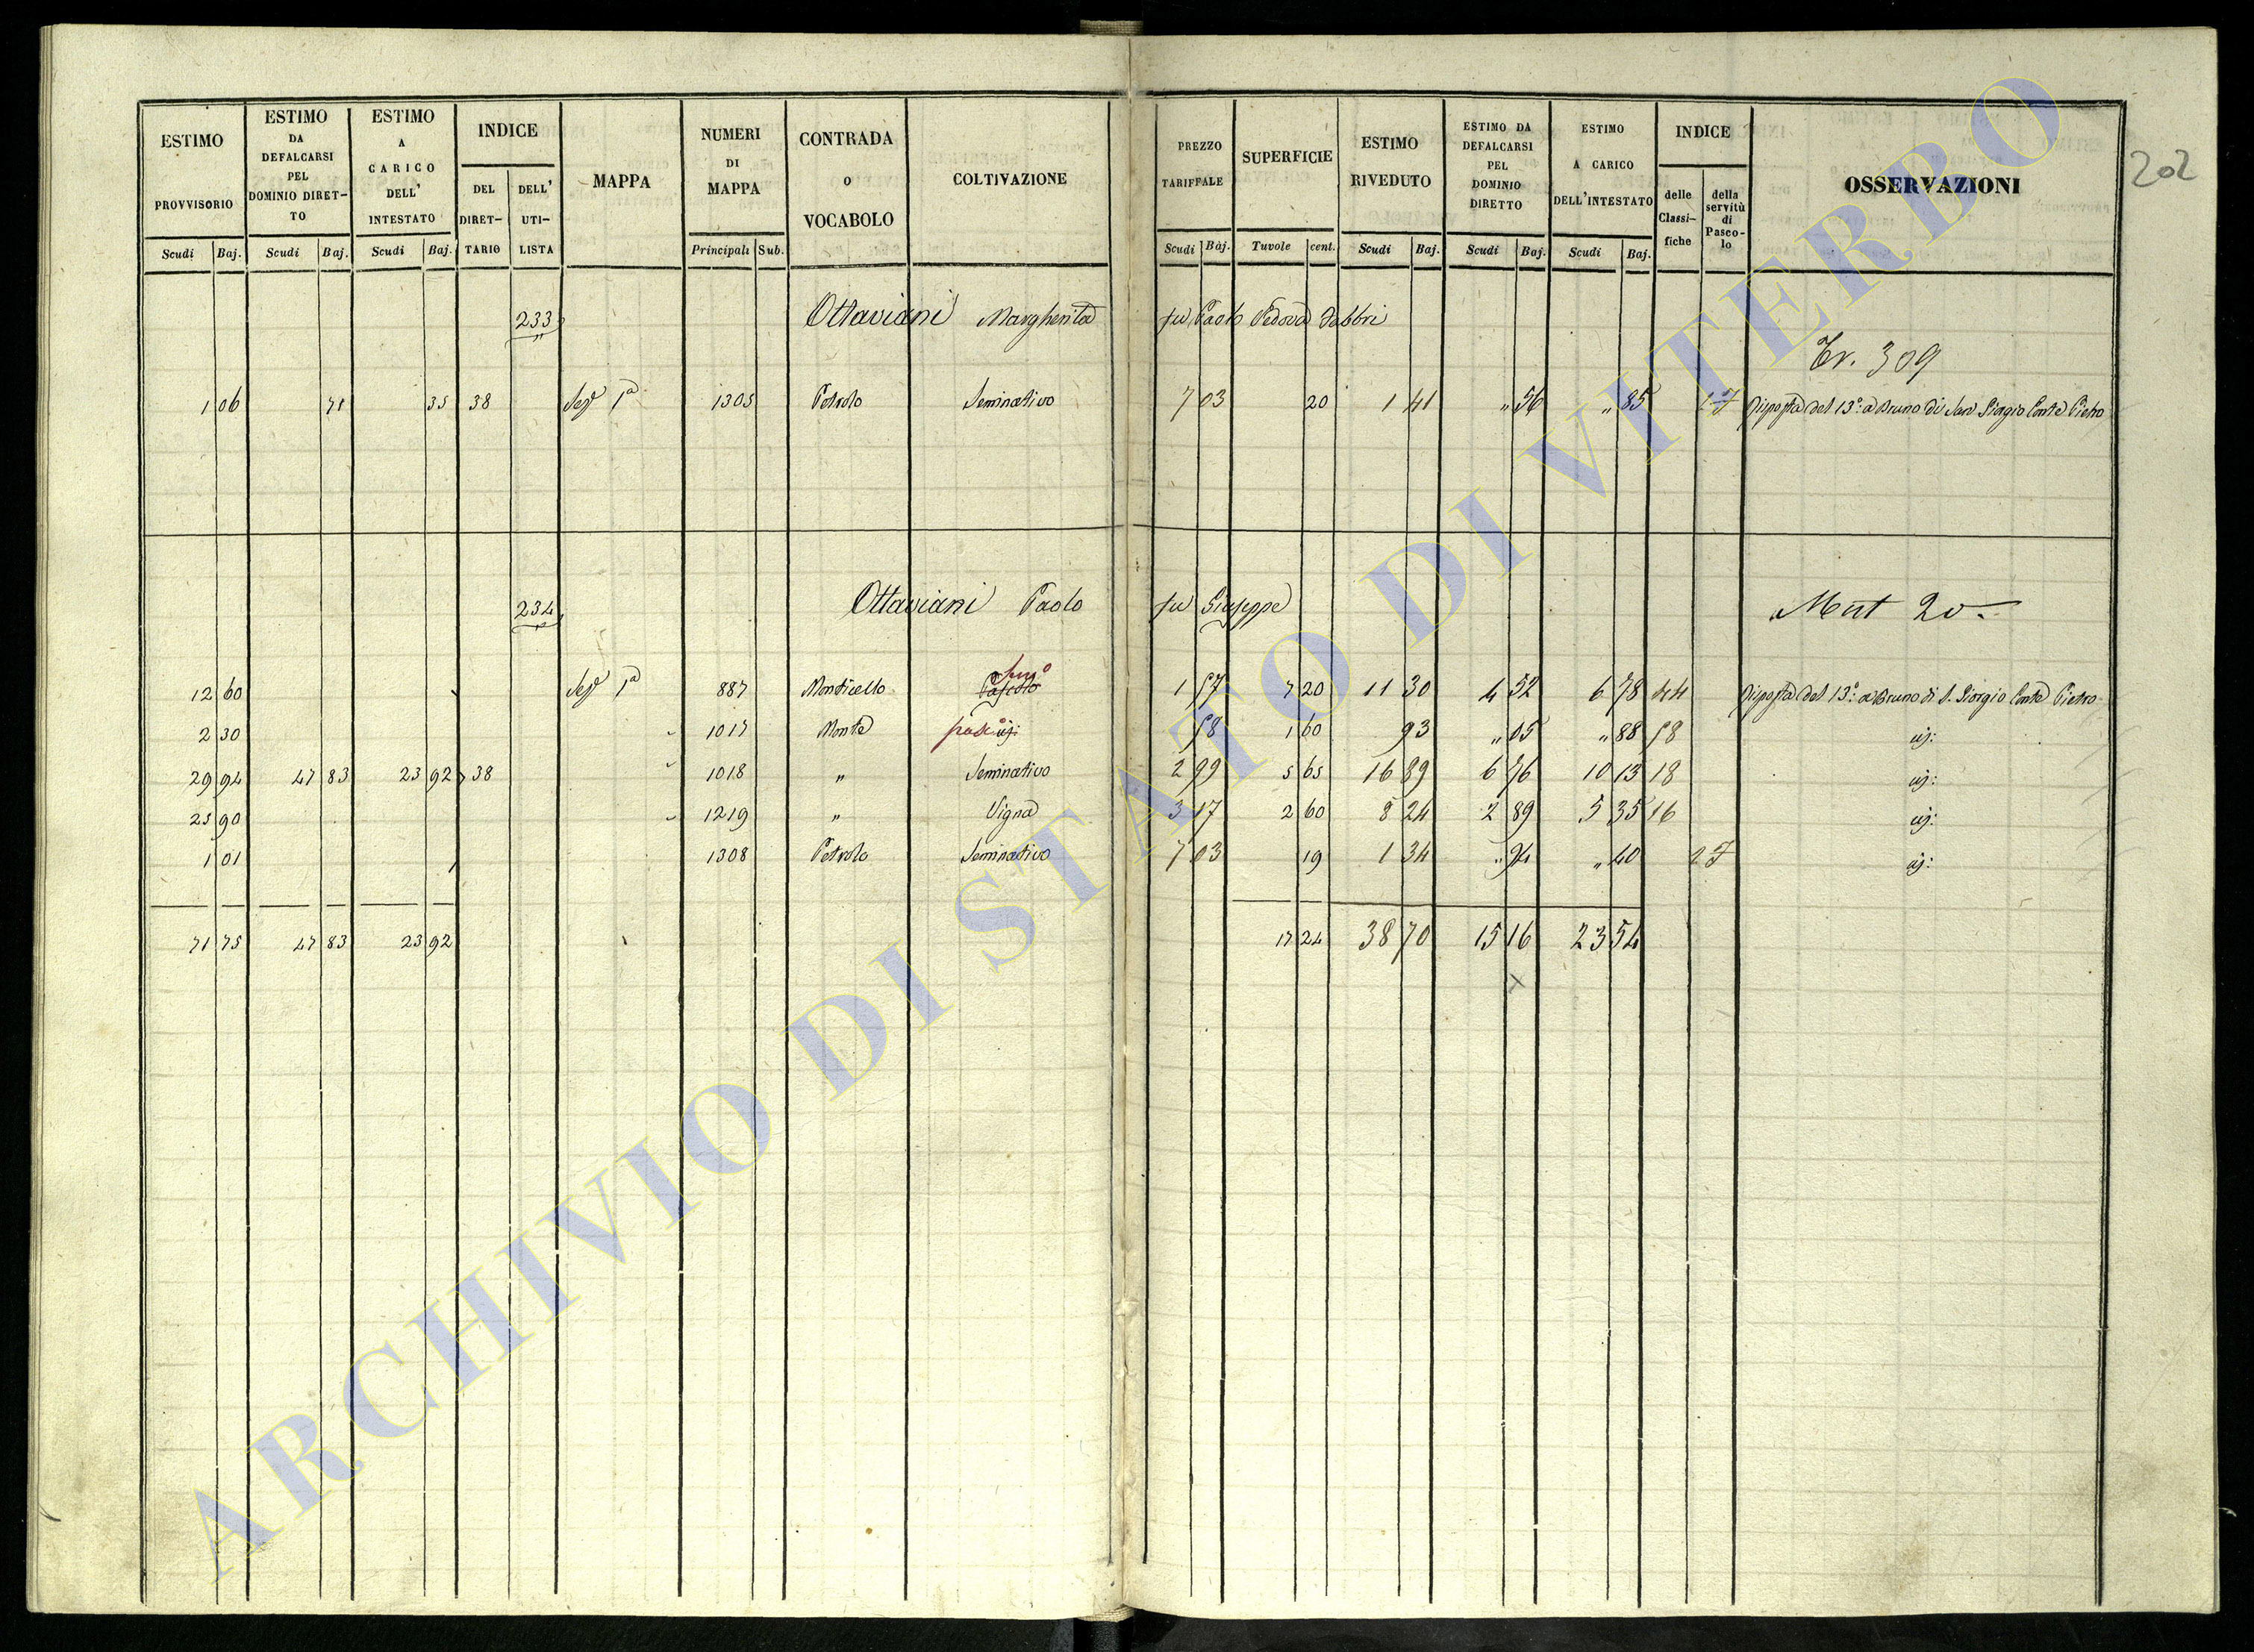 202
ESTIMO PROVVISORIO
ESTIMO DA DEFALCARSI PEL DOMINIO DIRET-TO
ESTIMO A CARICO DELL' INTESTATO
INDICE
DEL DIRET-TARIO
DELL' UTI-LISTA
MAPPA
NUMERI DI MAPPA
CONTRADA O VOCABOLO
COLTIVAZIONE
PREZZO TARIFFALE
SUPERFICIE
ESTIMO RIVEDUTO
ESTIMO DA DEFALCARSI PEL DOMINIO DIRETTO
ESTIMO A CARICO DELL'INTESTATO
INDICE
delle Classi-fiche
della servitù di Pasco-lo
OSSERVAZIONI
Scudi Baj. Scudi Baj. Scudi Baj. Principali Sub. Scudi Baj. Tavole cent. Scudi Baj. Scudi Baj. Scudi Baj.
233 Ottaviani Margherita fu Paolo Vedova Fabbri
Tr. 309
1 06 71 35 38 Sez.e 1a 1305 Petrolo Seminativo 7 03 20 1 41 " 56 " 85 Risposta del 13º: a Bruno di San Giorgio Conte Pietro
234 Ottaviani Paolo fu Giuseppe
Mut 20
Sem.o
12 60 Sez.e 1a 887 Monticello Pascolo 1 57 7 20 11 30 4 52 6 78 44 Risposta del 13º: a Bruno di S. Giorgio Conte Pietro
2 30 1017 Monte pasc.o id: 58 1 60 93 " 05 " 88 58 id:
29 94 47 83 23 92 38 1018 " Seminativo 2 99 5 65 16 89 6 76 10 13 18 id:
25 90 1219 " Vigna 3 17 2 60 8 24 2 89 5 35 16 id:
1 01 1308 Petrolo Seminativo 7 03 19 1 34 " 94 " 40 id:
71 75 47 83 23 92 17 24 38 70 15 16 23 54
x
ARCHIVIO DI STATO DI VITERBO